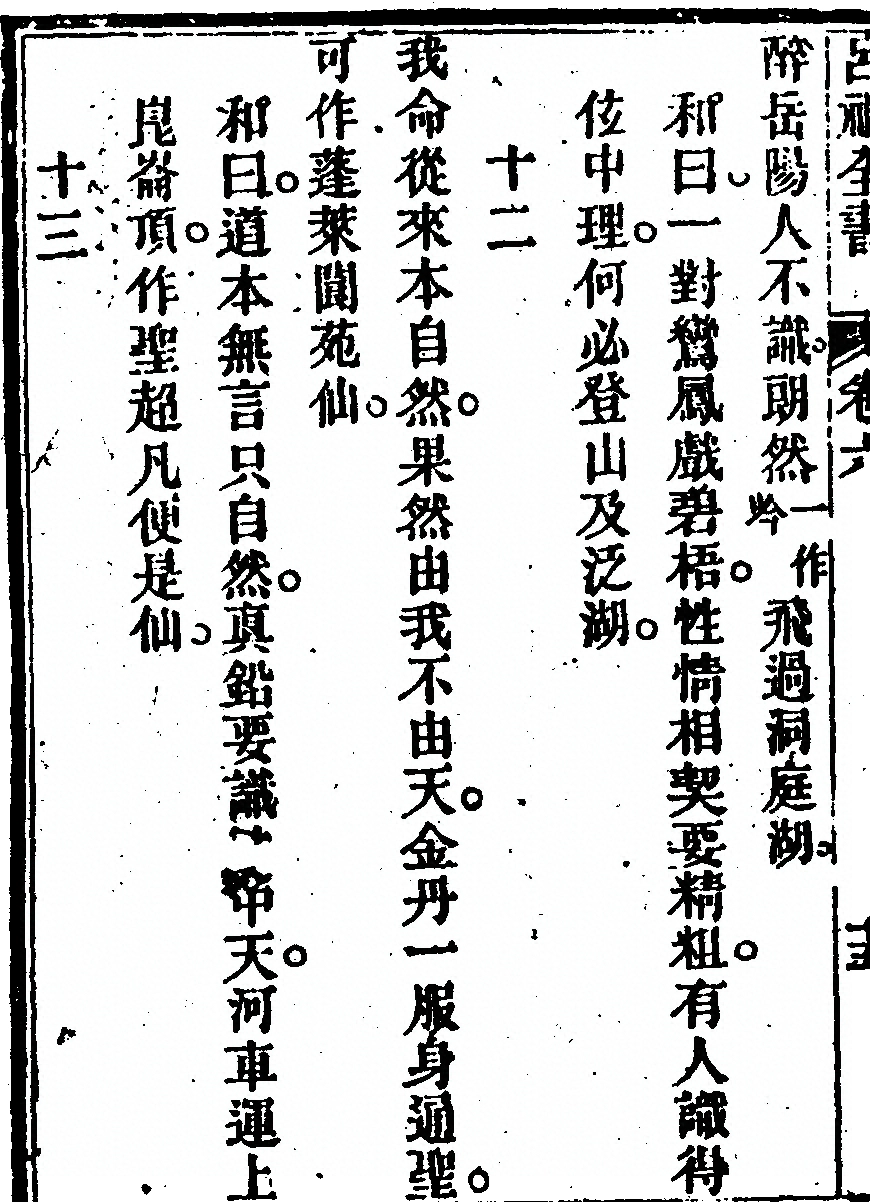 呂祖全書 卷六
醉岳陽人不識。朗然一作吟飛過洞庭湖。
和曰。一對鸞鳳戲碧梧。性情相契要精粗。有人識得
伭中理。何必登山及泛湖。
十二
我命從來本自然。果然由我不由天。金丹一服身通聖。
可作蓬萊閬苑仙。
和曰。道本無言只自然。真鉛要識中天。河車運上
崑崙頂。作聖超凡便是仙。
十三